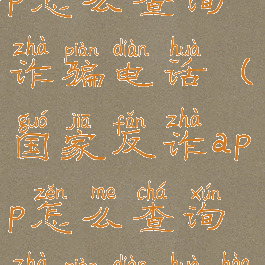 p怎么查询
zhà piàn diàn huà
诈骗电话（
guó jiā fǎn zhà
国家反诈ap
zěn me chá xún
p怎么查询
zhà piàn diàn huà hào